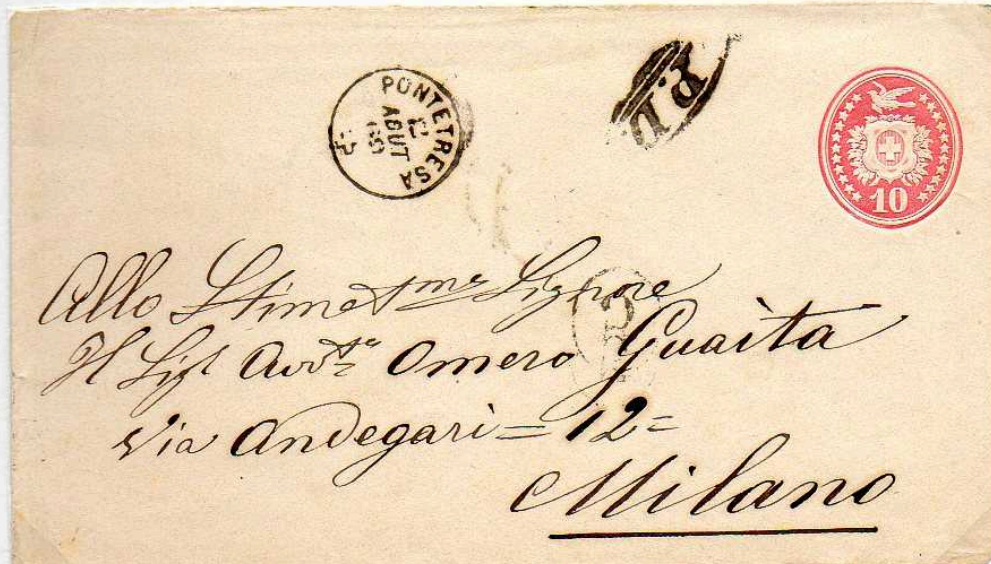 PONTETRESA
AOUT
P.D.
10
Allo Stimatme Signore
Il Sigr Avvte Omero Guaita
Via Andegari = 12 =
Milano